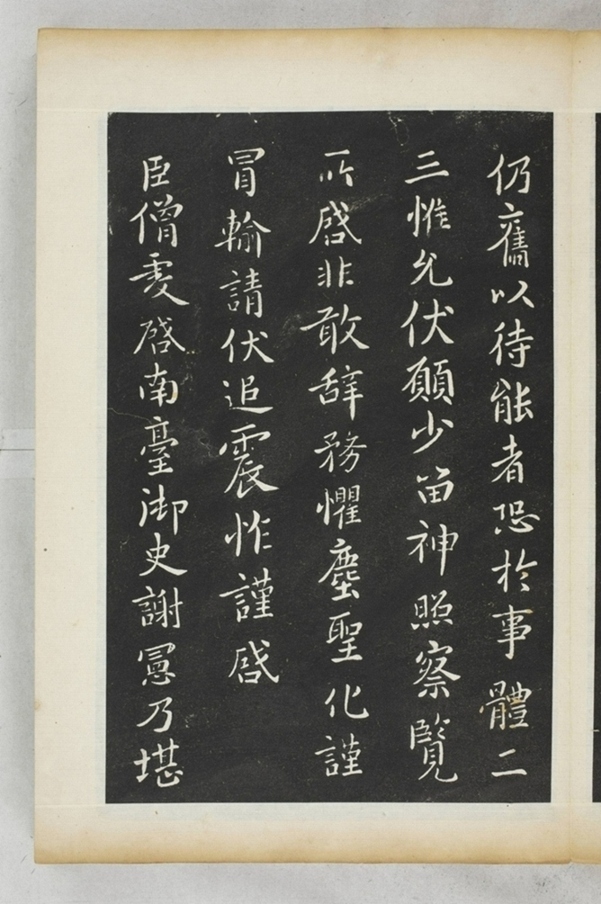 仍舊以待能者恐於事體二
三惟允伏願少留神照察覽
所啓非敢辞務懼塵聖化謹
冒輸請伏追震怍謹啓
臣僧虔啓南臺御史謝憲乃堪